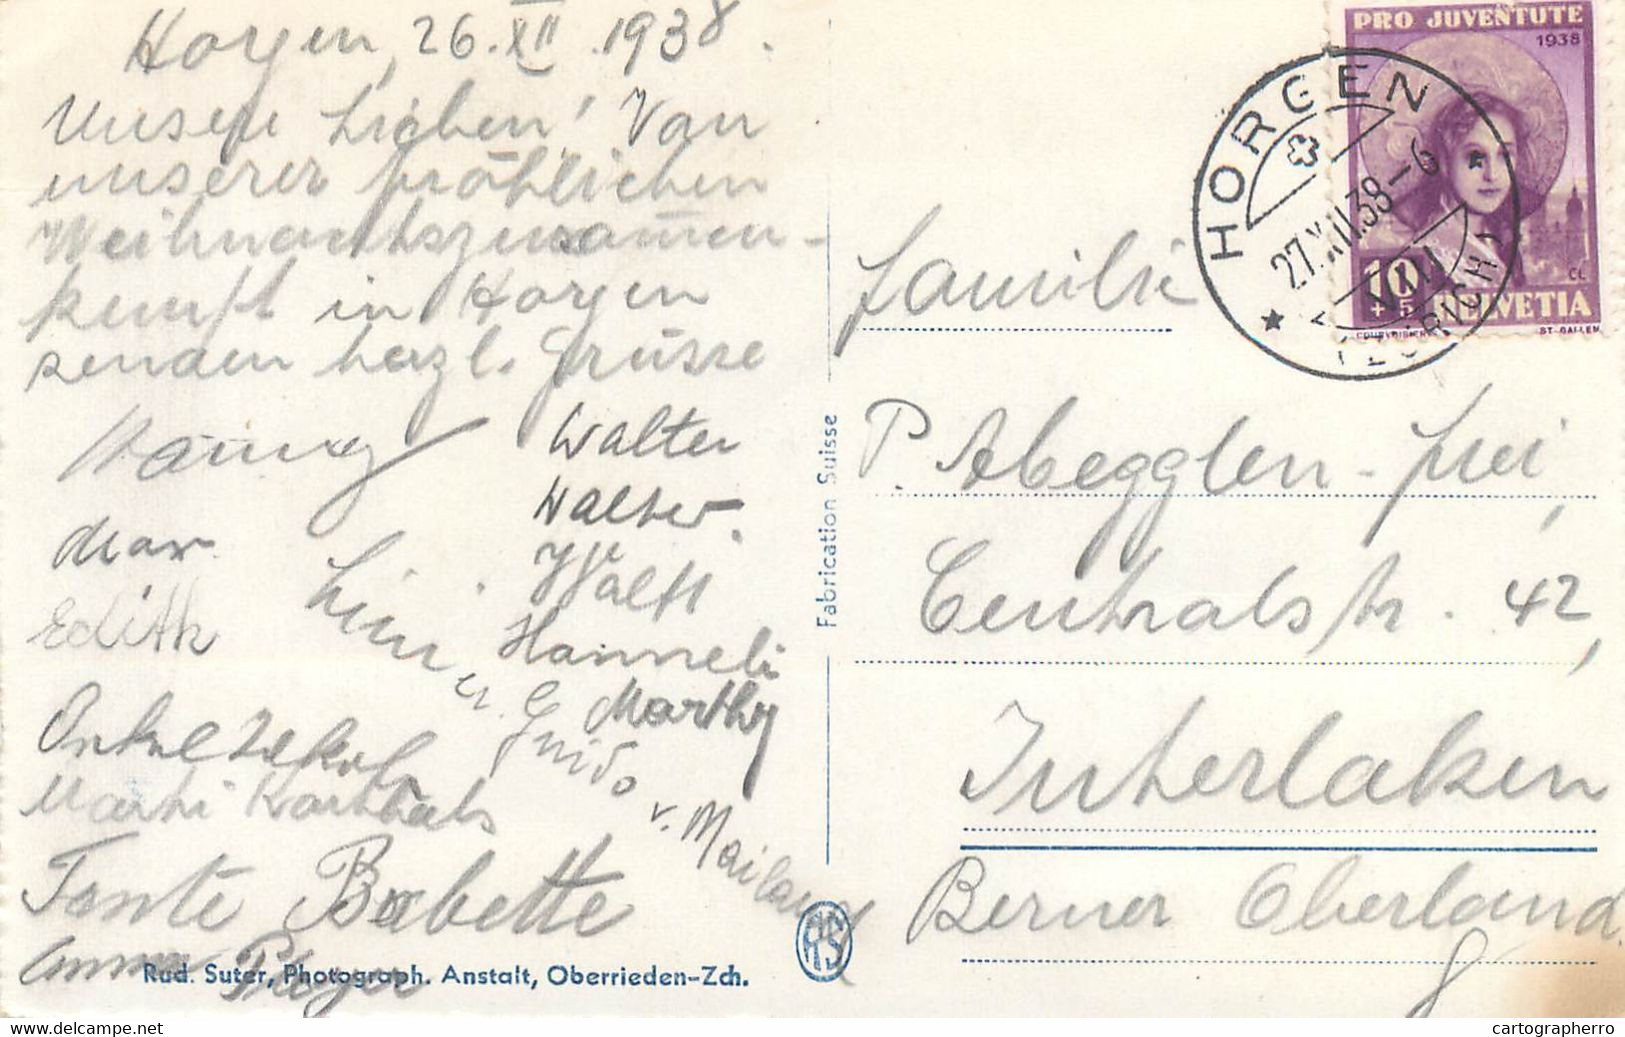 Horgen, 26. XII. 1938.
Unsere Lieben! Von
unserer fröhlichen
Weihnachtszusam̄en-
kunft in Horgen
senden herzl. Grüsse
Walter
Walter.
Max
Wälti
Edith
Lini u. Guido v. Mailand
Hanneli
Marthy
Onkel
Marti
Tante Babette
Anna
Rud. Suter, Photograph. Anstalt, Oberrieden-Zch.
RS
Fabrication Suisse
PRO JUVENTUTE
1938
10
+5
HELVETIA
CL
COURVOISIER
ST. GALLEN
HORGEN
27.XII.38-6
(ZÜRICH)
Familie
P. Abegglen-Frei,
Centralstr. 42,
Interlaken
Berner Oberland
cartographerro